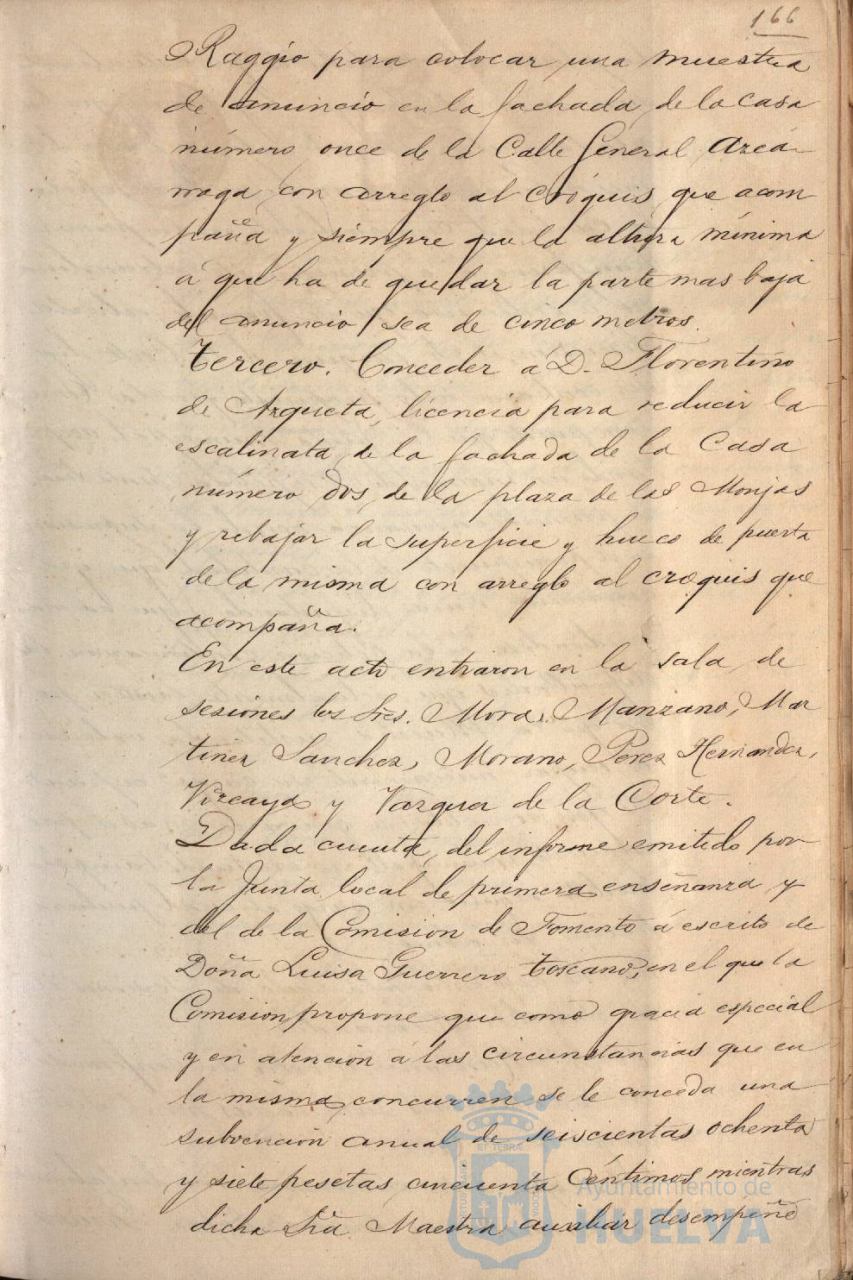 166
Raggio para colocar una muestra
de anuncio en la fachada de la casa
número once de la Calle General Azcá-
rraga con arreglo al cróquis que acom
pañe y siempre que la altura mínima
á que ha de quedar la parte mas baja
del anuncio sea de cinco metros.
Tercero. Conceder á D. Florentino
de Arqueta, licencia para reducir la
escalinata de la fachada de la Casa
número dos, de la plaza de las Monjas
y rebajar la superficie y hueco de puerta
de la misma con arreglo al croquis que
acompaña.
En este acto entraron en la sala de
sesiones los Sres. Mora, Manzano, Mar
tinez Sanchez, Morano, Perez Hernandez,
Vizcaya y Vazquez de la Corte.
Dada cuenta, del informe emitido por
la Junta local de primera enseñanza y
del de la Comision de Fomento á escrito de
Doña Luisa Guerrero Toscano, en el que la
Comision propone que como gracia especial
y en atencion á las circunstancias que en
la misma concurren se le conceda una
subvención anual de seiscientas ochenta
y siete pesetas cincuenta céntimos mientras
dicha Sra. Maestra auxiliar desempeñe
Ayuntamiento de
HUELVA